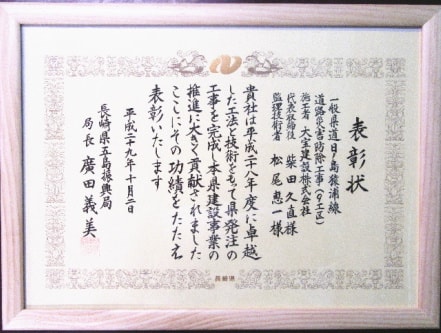 表彰状
一般県道日ノ島猿浦線
道路災害防除工事(9工区)
施工者 大宝建設株式会社
代表取締役 柴田久直様
監理技術者 松尾恵一様
貴社は平成二十八年度に卓越
した工法と技術をもって県発注の
工事を完成し本県建設事業の
推進に大きく貢献されました
ここにその功績をたたえ
表彰いたします
平成二十九年十月二日
長崎県五島振興局
局長 廣田義美
長崎県